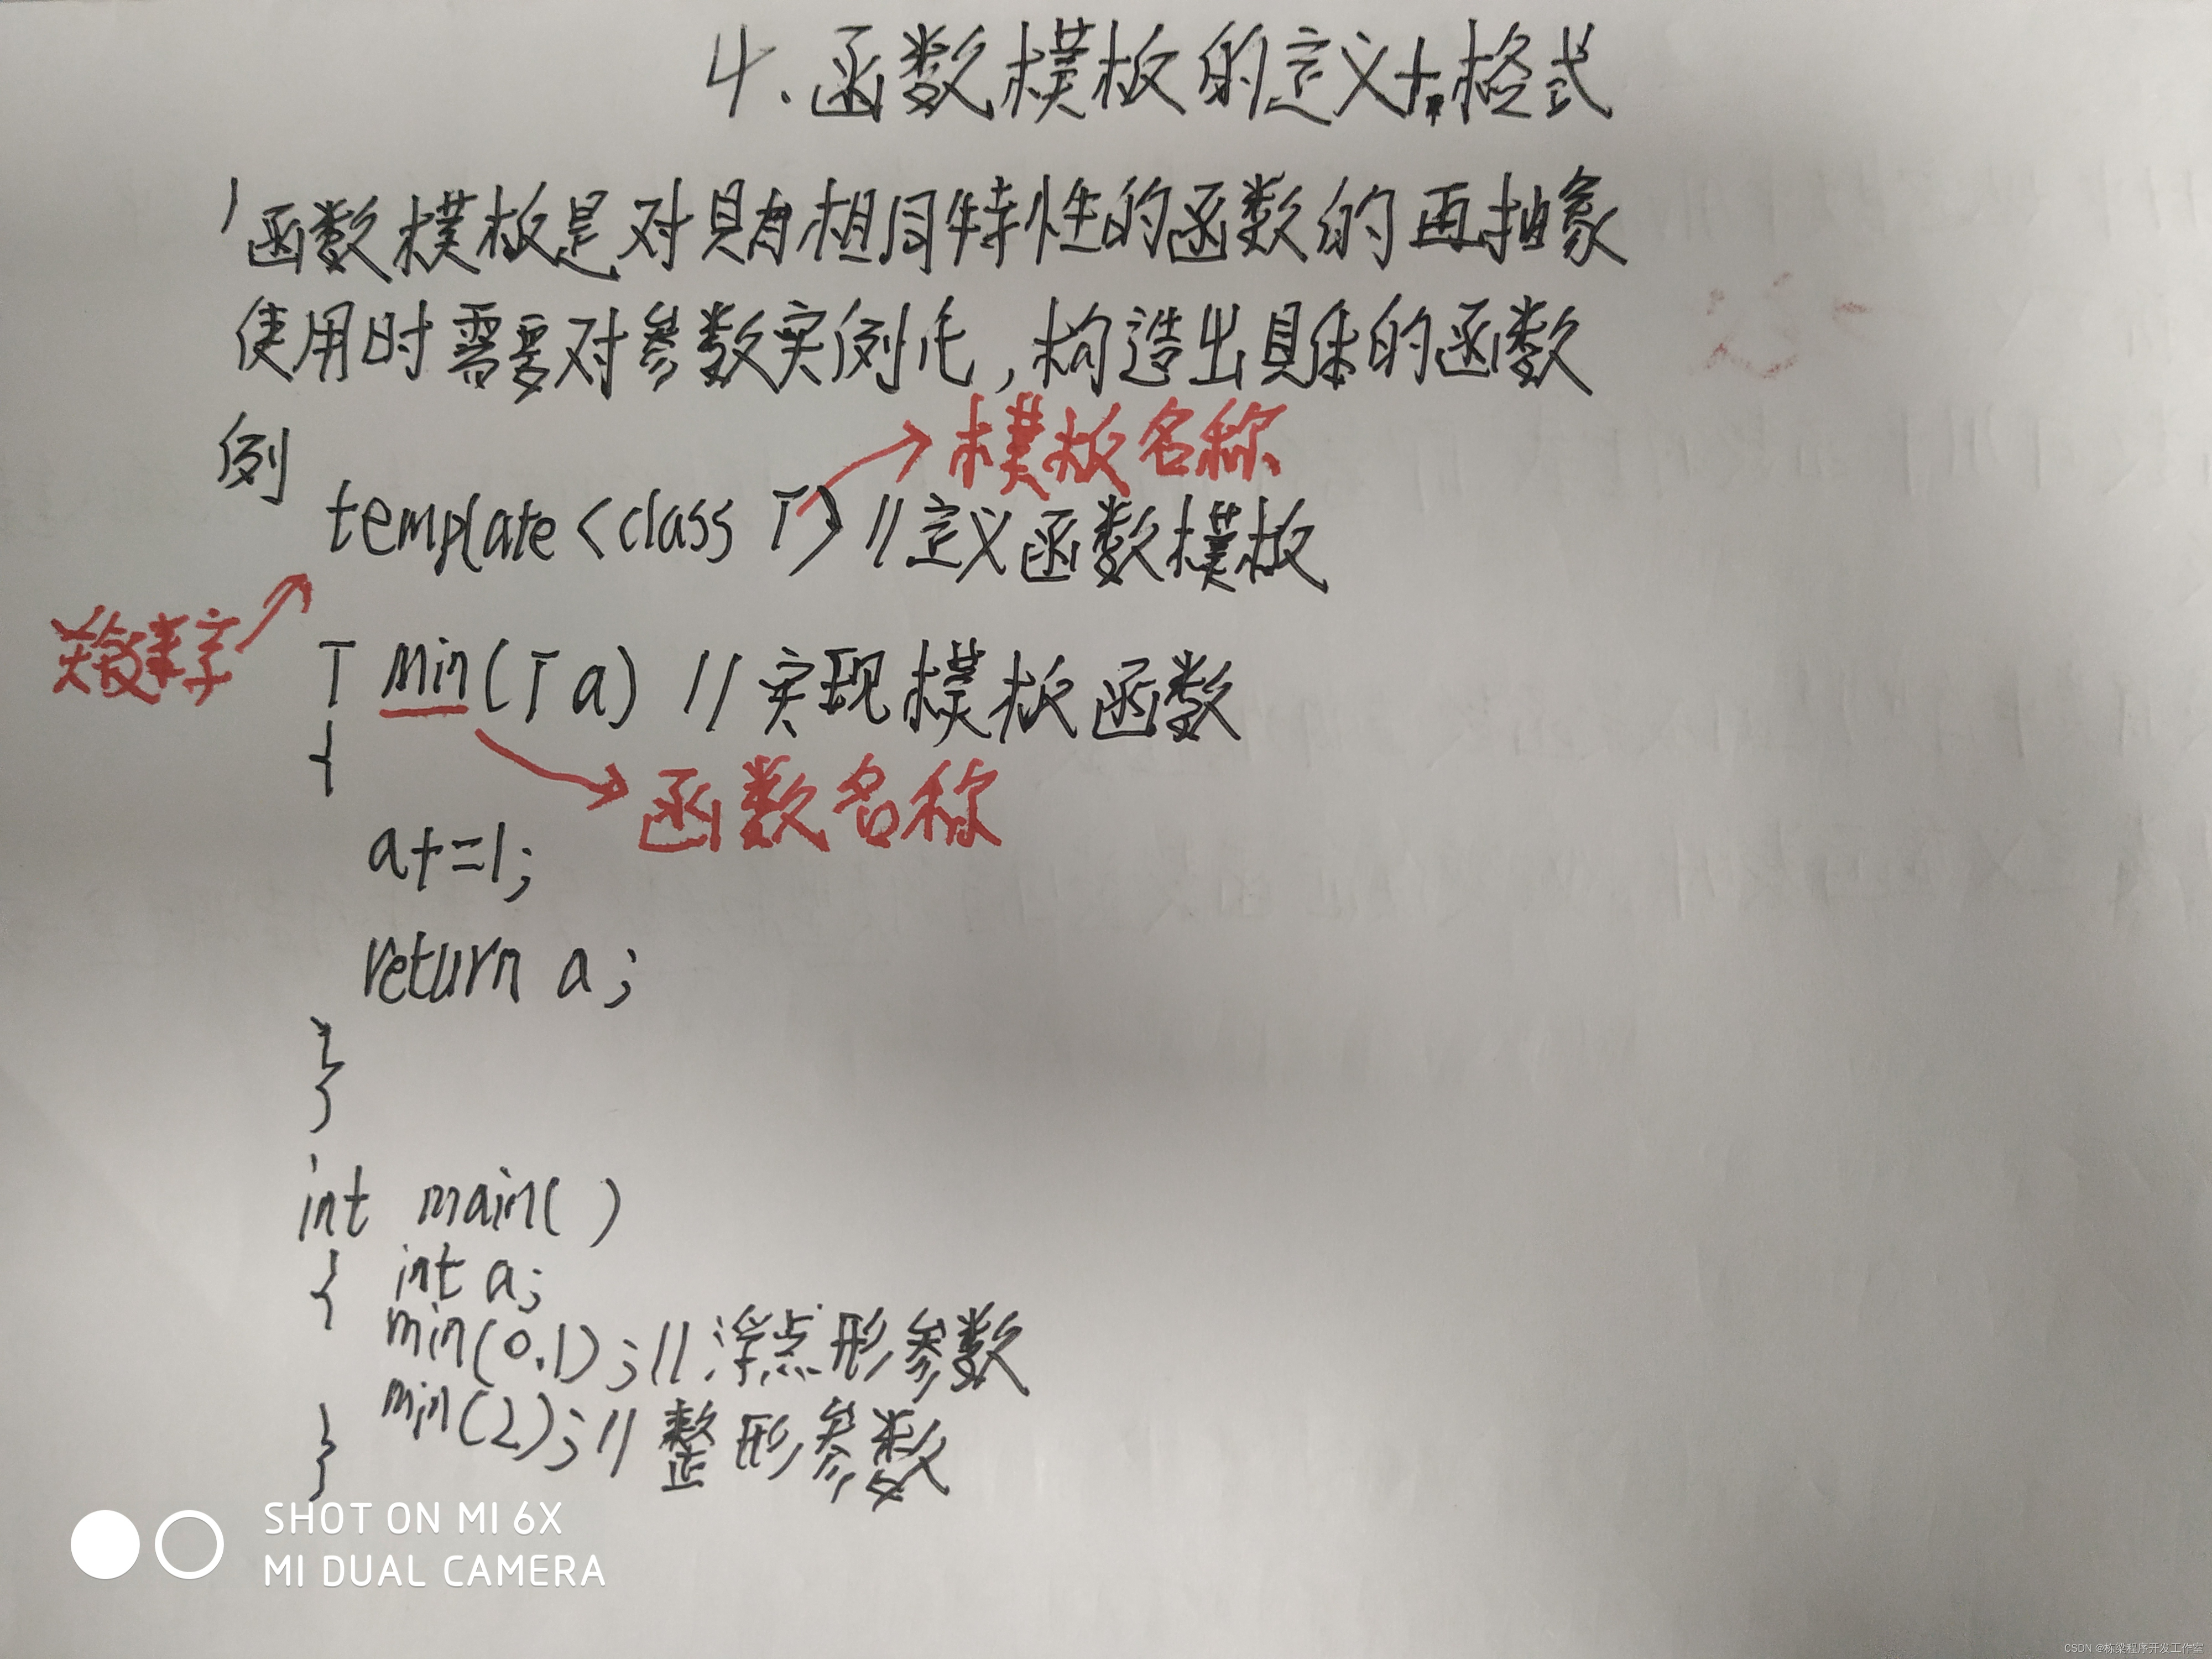 4.函数模板的定义+格式
函数模板是对具有相同特性的函数的再抽象
使用时需要对参数实例化,构造出具体的函数
例
模板名称
template <class T> //定义函数模板
关键字
T min(T a) //实现模板函数
{
函数名称
a+=1;
return a;
}
int main( )
{ int a;
min(0.1);//浮点形参数
min(2);//整形参数
}
SHOT ON MI 6X
MI DUAL CAMERA
CSDN @栋梁程序开发工作室